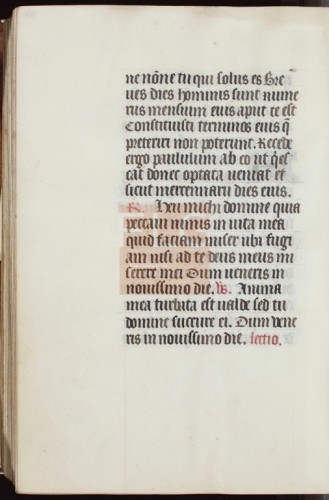 ne nōne tu qui solus es Bre
ues dies hominis sunt nume
rus mensium eius aput te est
Constituisti terminos eius q̄
preteriri non poterunt. Recede
ergo paululum ab eo ut q̄es
cat donec optata veniat et
sicut mercennarii dies eius.
R. Heu michi domine quia
peccaui nimis in vita mea
quid faciam miser ubi fugi
am nisi ad te deus meus mi
serere mei Dum veneris in
nouissimo die. vs. Anima
mea turbata est valde sed tu
domine succure ei. Dum vene
ris in nouissimo die. lectio.